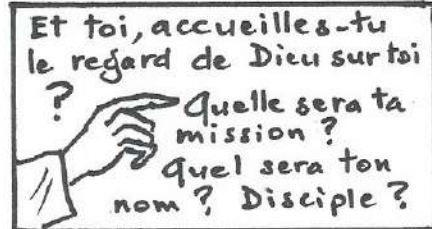 Et toi, accueilles-tu
le regard de Dieu sur toi
?
Quelle sera ta
mission ?
quel sera ton
nom ? Disciple ?